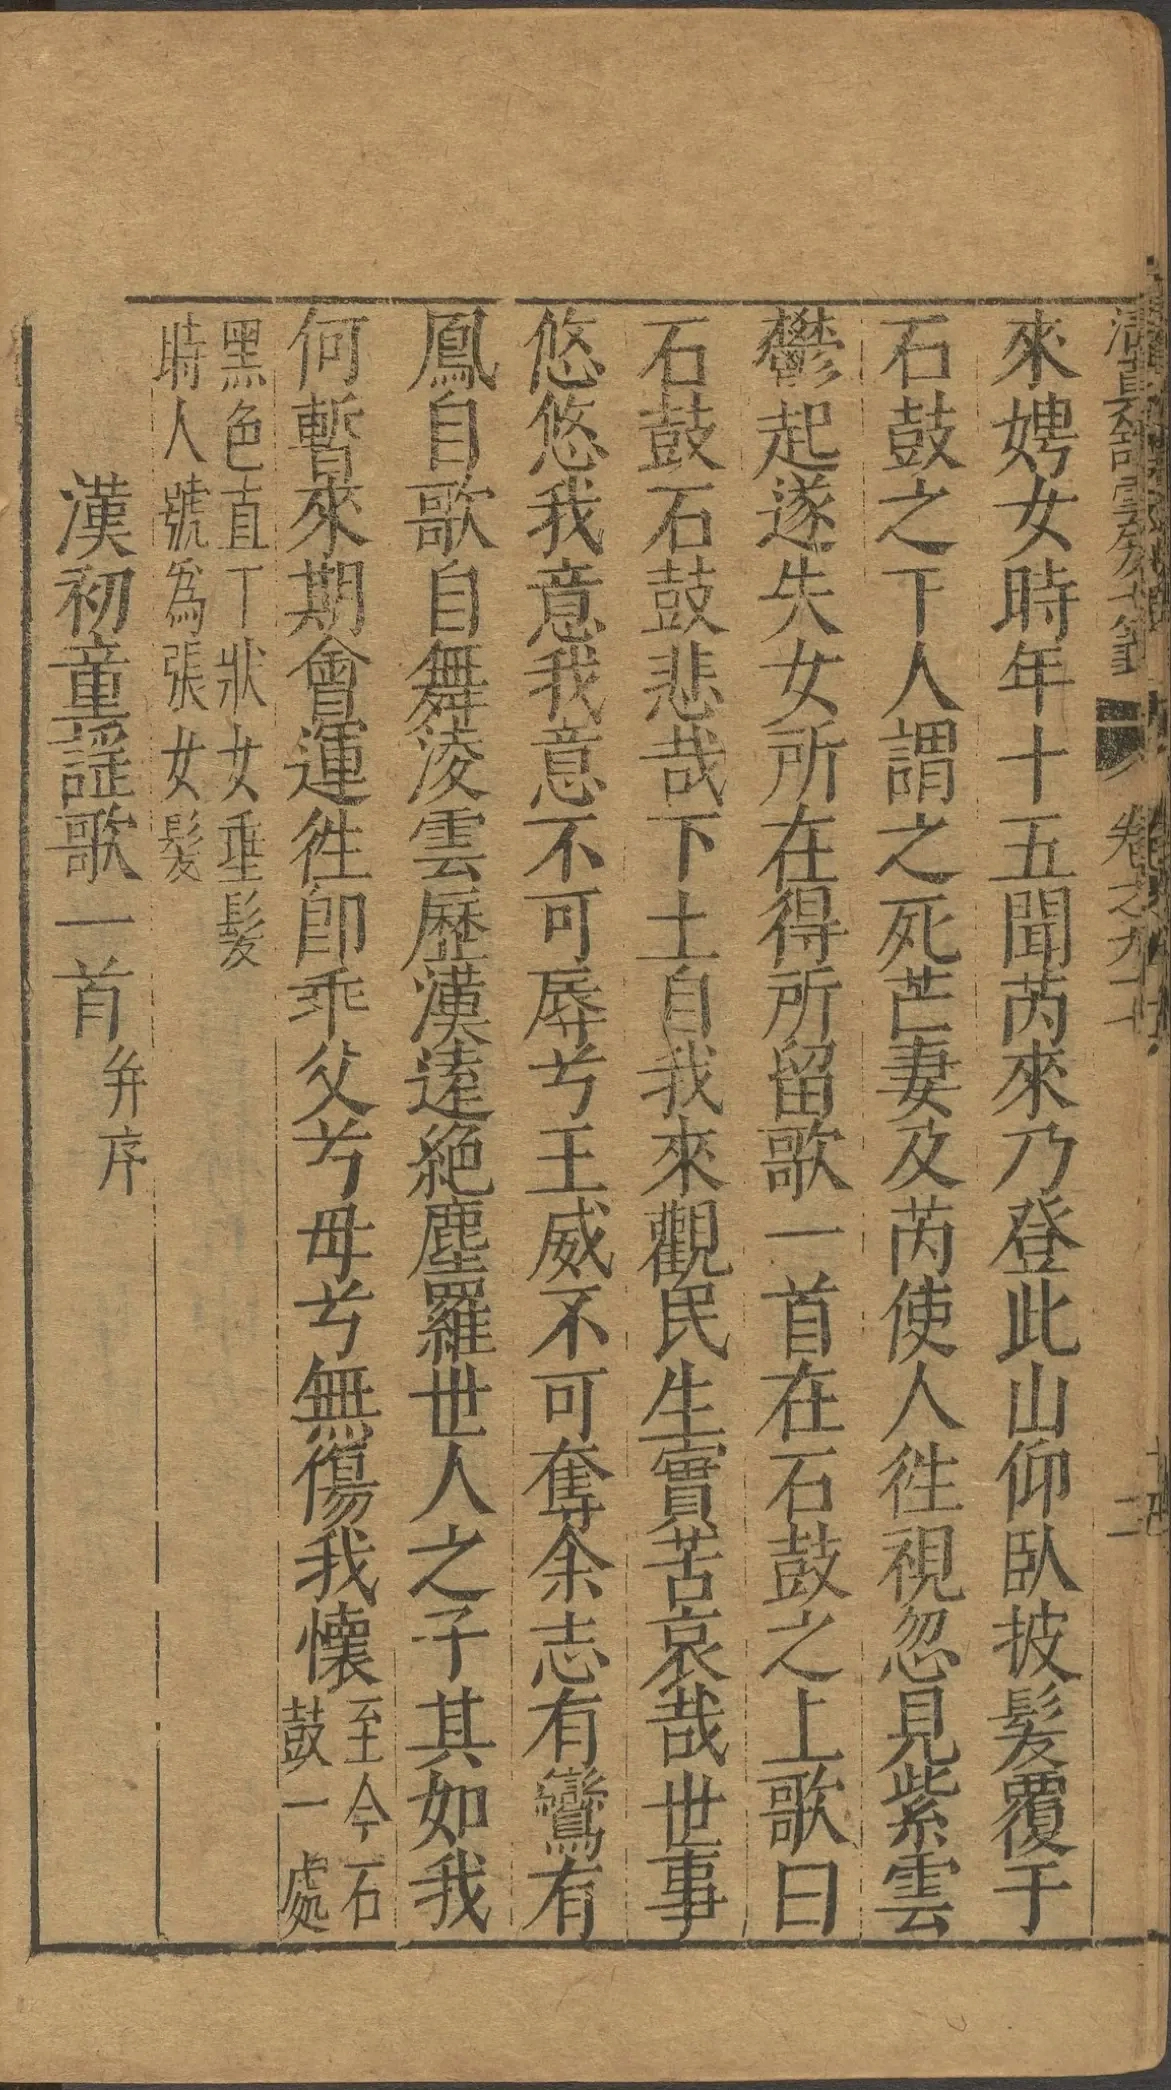 來娉女時年十五聞芮來乃登此山仰臥披髮覆于
石鼓之下人謂之死芒妻及芮使人徃視忽見紫雲
鬱起遂失女所在得所留歌一首在石鼓之上歌曰
石鼓石鼓悲哉下土自我來觀民生實苦哀哉世事
悠悠我意我意不可辱兮王威不可奪余志有鸞有
鳳自歌自舞淩雲歷漢遠絶塵羅世人之子其如我
何暫來期會運徃即乖父兮母兮無傷我懷
至今石
鼓一處
黑色直下狀女垂髮
時人號為張女髮
漢初童謡歌一首
并序